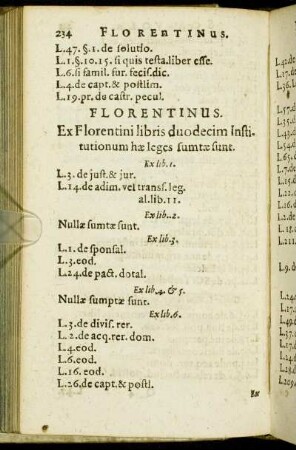 234 FLORENTINUS.
L.47. §.1. de solutio.
L.1.§.10.15. si quis testa.liber esse.
L.6.si famil. fur. fecis.dic.
L.4.de capt.& postlim.
L.19.pr.de castr. pecul.
FLORENTINUS.
Ex Florentini libris duodecim Insti-
tutionum hæ leges sumtæ sunt.
Ex lib.1.
L.3. de just.& jur.
L.14.de adim. vel transf. leg.
al.lib.11.
Ex lib..2.
Nullæ sumtæ sunt.
Ex lib.3.
L.1. de sponsal.
L.3. eod.
L.24.de pact. dotal.
Ex lib.4. & 5.
Nullæ sumptæ sunt.
Ex lib.6.
L.3.de divis. rer.
L..2. de acq.rer. dom.
L.4.eod.
L.6.eod.
L.16. eod.
L.26.de capt.& postl.
L.42.
L.9.d
L.209